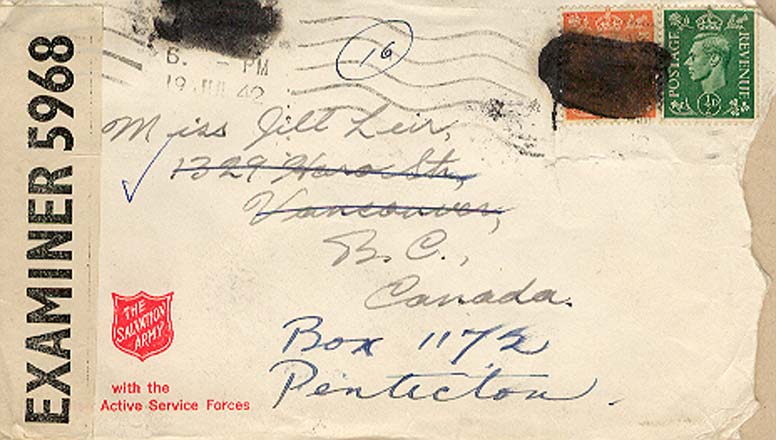 EXAMINER 5968
6. - PM
19 JUL 42
16
POSTAGE
REVENUE
½D
Miss Jill Leir,
1329 Haro Str,
Vancouver,
B.C.,
Canada.
Box 1175
Penticton.
THE
SALVATION
ARMY
with the
Active Service Forces